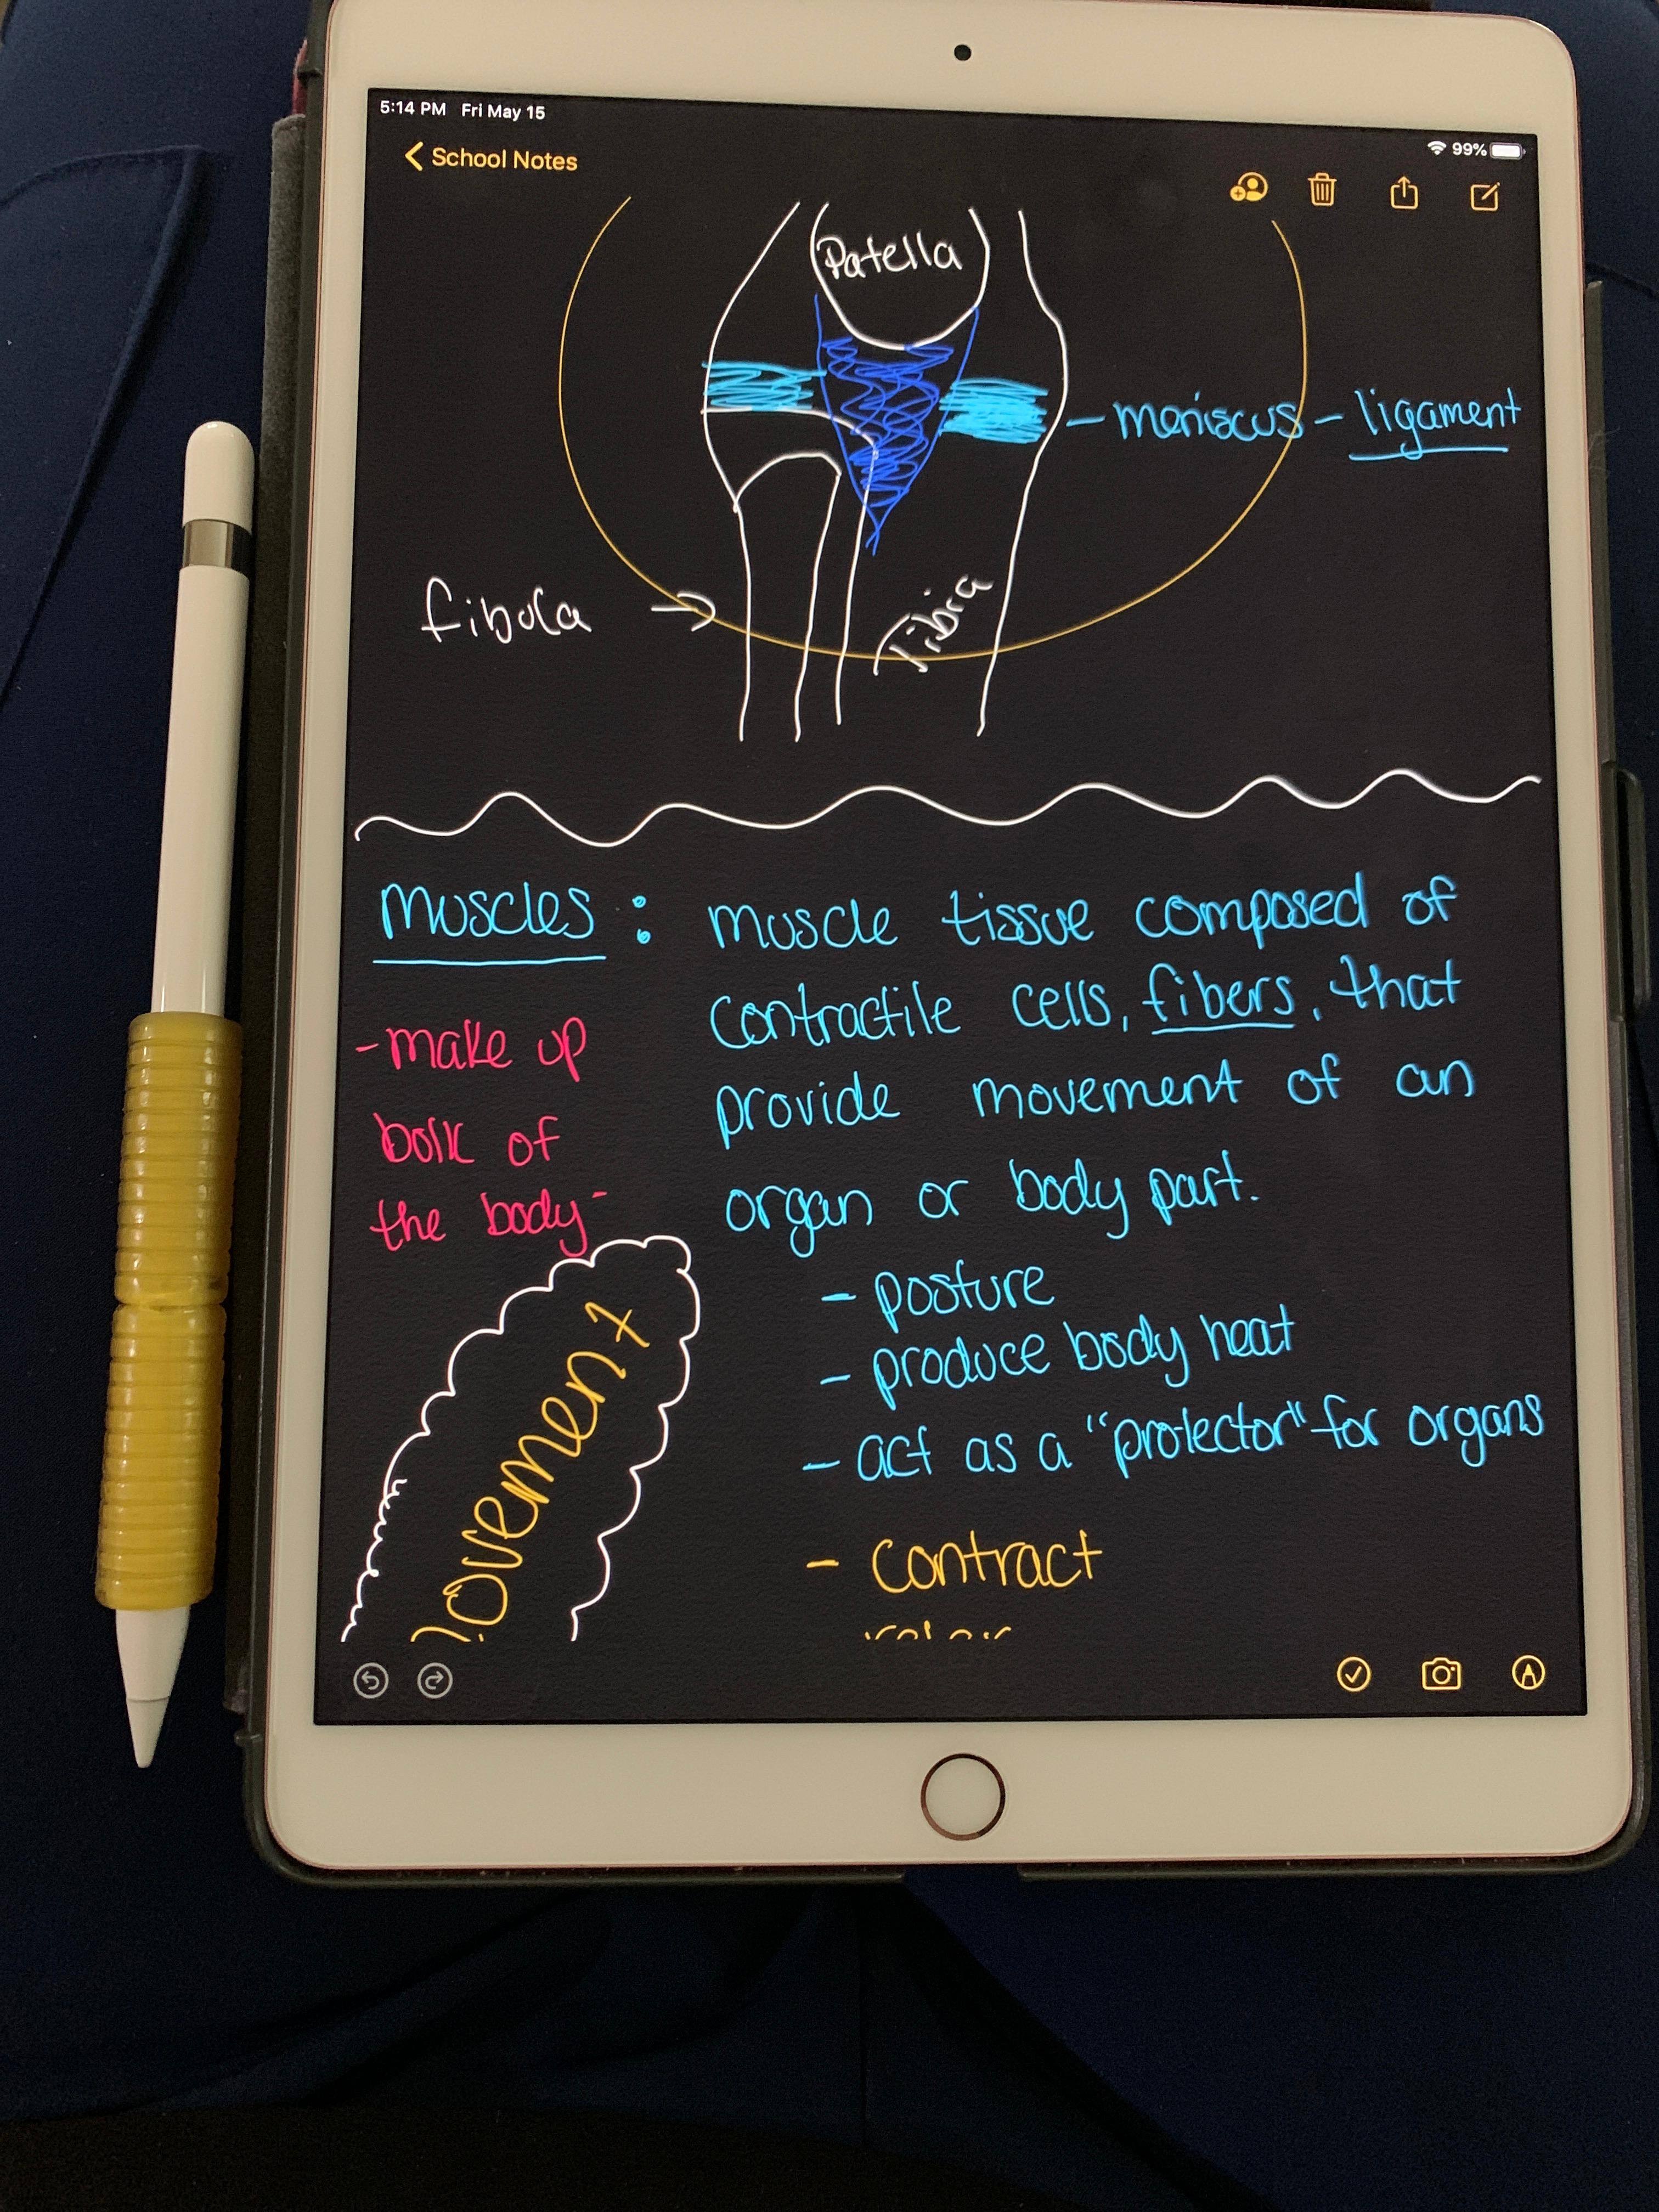 5:14 PM Fri May 15
99%
School Notes
Patella
- meniscus - ligament
fibula →
Tibia
Muscles : muscle tissue composed of
contractile cells, fibers, that
provide movement of an
organ or body part.
- make up
bulk of
the body -
- posture
- produce body heat
- act as a "protector" for organs
movement
- contract